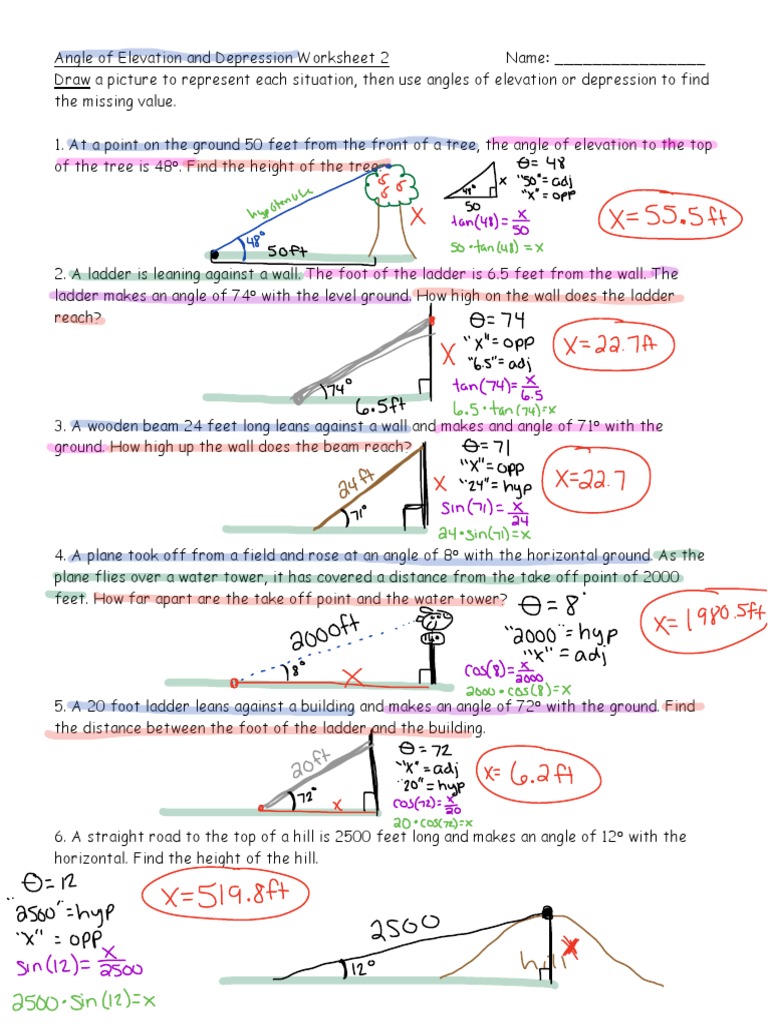 Angle of Elevation and Depression Worksheet 2 Name: ________________
Draw a picture to represent each situation, then use angles of elevation or depression to find
the missing value.
1. At a point on the ground 50 feet from the front of a tree, the angle of elevation to the top
of the tree is 48º. Find the height of the tree.
hypotenuse
48°
50ft
X
48°
x
50
θ= 48
"50"= adj
"x"= opp
tan(48)= x/50
50·tan(48)=x
X=55.5ft
2. A ladder is leaning against a wall. The foot of the ladder is 6.5 feet from the wall. The
ladder makes an angle of 74º with the level ground. How high on the wall does the ladder
reach?
74°
6.5ft
X
θ=74
"x"= opp
"6.5"= adj
tan(74)= x/6.5
6.5·tan(74)=x
X=22.7ft
3. A wooden beam 24 feet long leans against a wall and makes and angle of 71º with the
ground. How high up the wall does the beam reach?
24ft
71°
X
θ=71
"X"= opp
"24"= hyp
sin(71)= x/24
24·sin(71)=x
X=22.7
4. A plane took off from a field and rose at an angle of 8º with the horizontal ground. As the
plane flies over a water tower, it has covered a distance from the take off point of 2000
feet. How far apart are the take off point and the water tower?
2000ft
8°
X
θ=8°
"2000"=hyp
"x"=adj
cos(8)= x/2000
2000·cos(8)=x
X=1980.5ft
5. A 20 foot ladder leans against a building and makes an angle of 72º with the ground. Find
the distance between the foot of the ladder and the building.
20ft
72°
x
θ=72
"x"=adj
"20"=hyp
cos(72)= x/20
20·cos(72)=x
X=6.2ft
6. A straight road to the top of a hill is 2500 feet long and makes an angle of 12º with the
horizontal. Find the height of the hill.
θ=12
"2500"=hyp
"x" = opp
sin(12)= x/2500
2500·sin(12)=x
X=519.8ft
2500
12°
hill
x